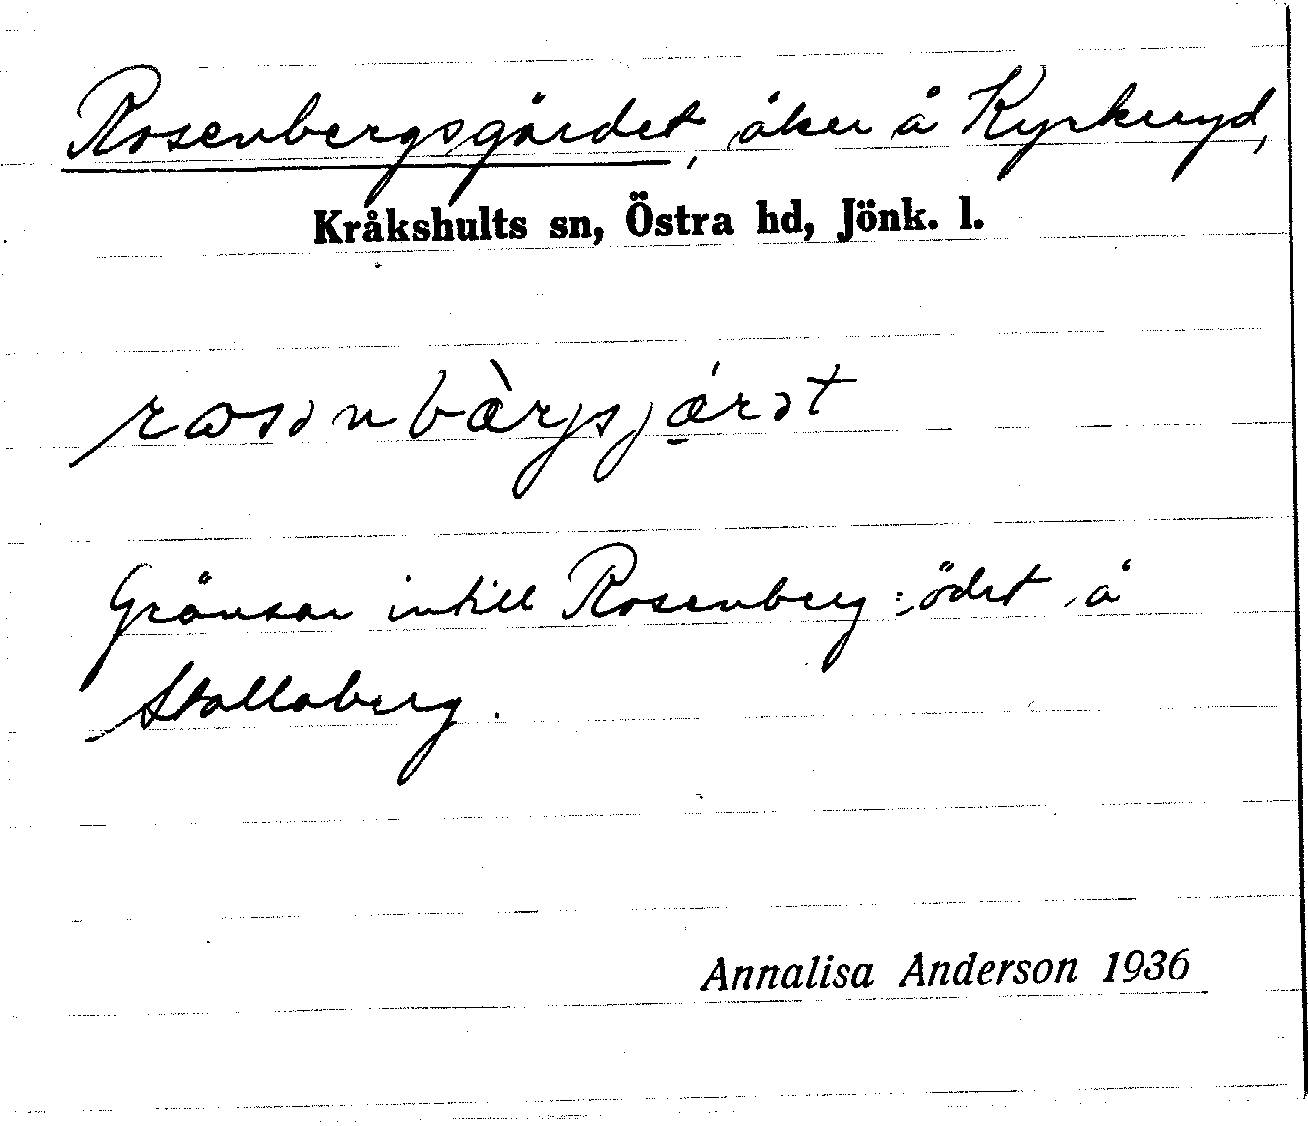 Rosenbergsgärdet, åker å Kyrkeryd,
Kråkshults sn, Östra hd, Jönk. l.
rɷsənbàrjsjárət
Gränsar intill Rosenberg, ödet å
Stallaberg.
Annalisa Anderson 1936